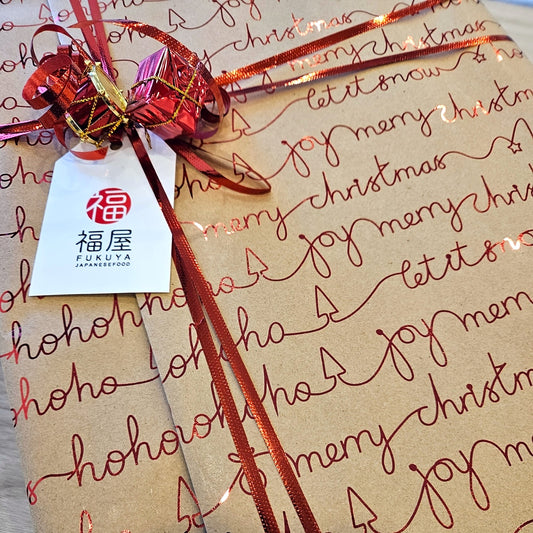 hohoho merry christmas
joy merry christmas
let it snow
hohoho joy merry christmas
merry christmas
joy merry
let it snow
福
福屋
FUKUYA
JAPANESEFOOD
hohoho joy merry
hohoho merry christmas
hohoho merry
joy